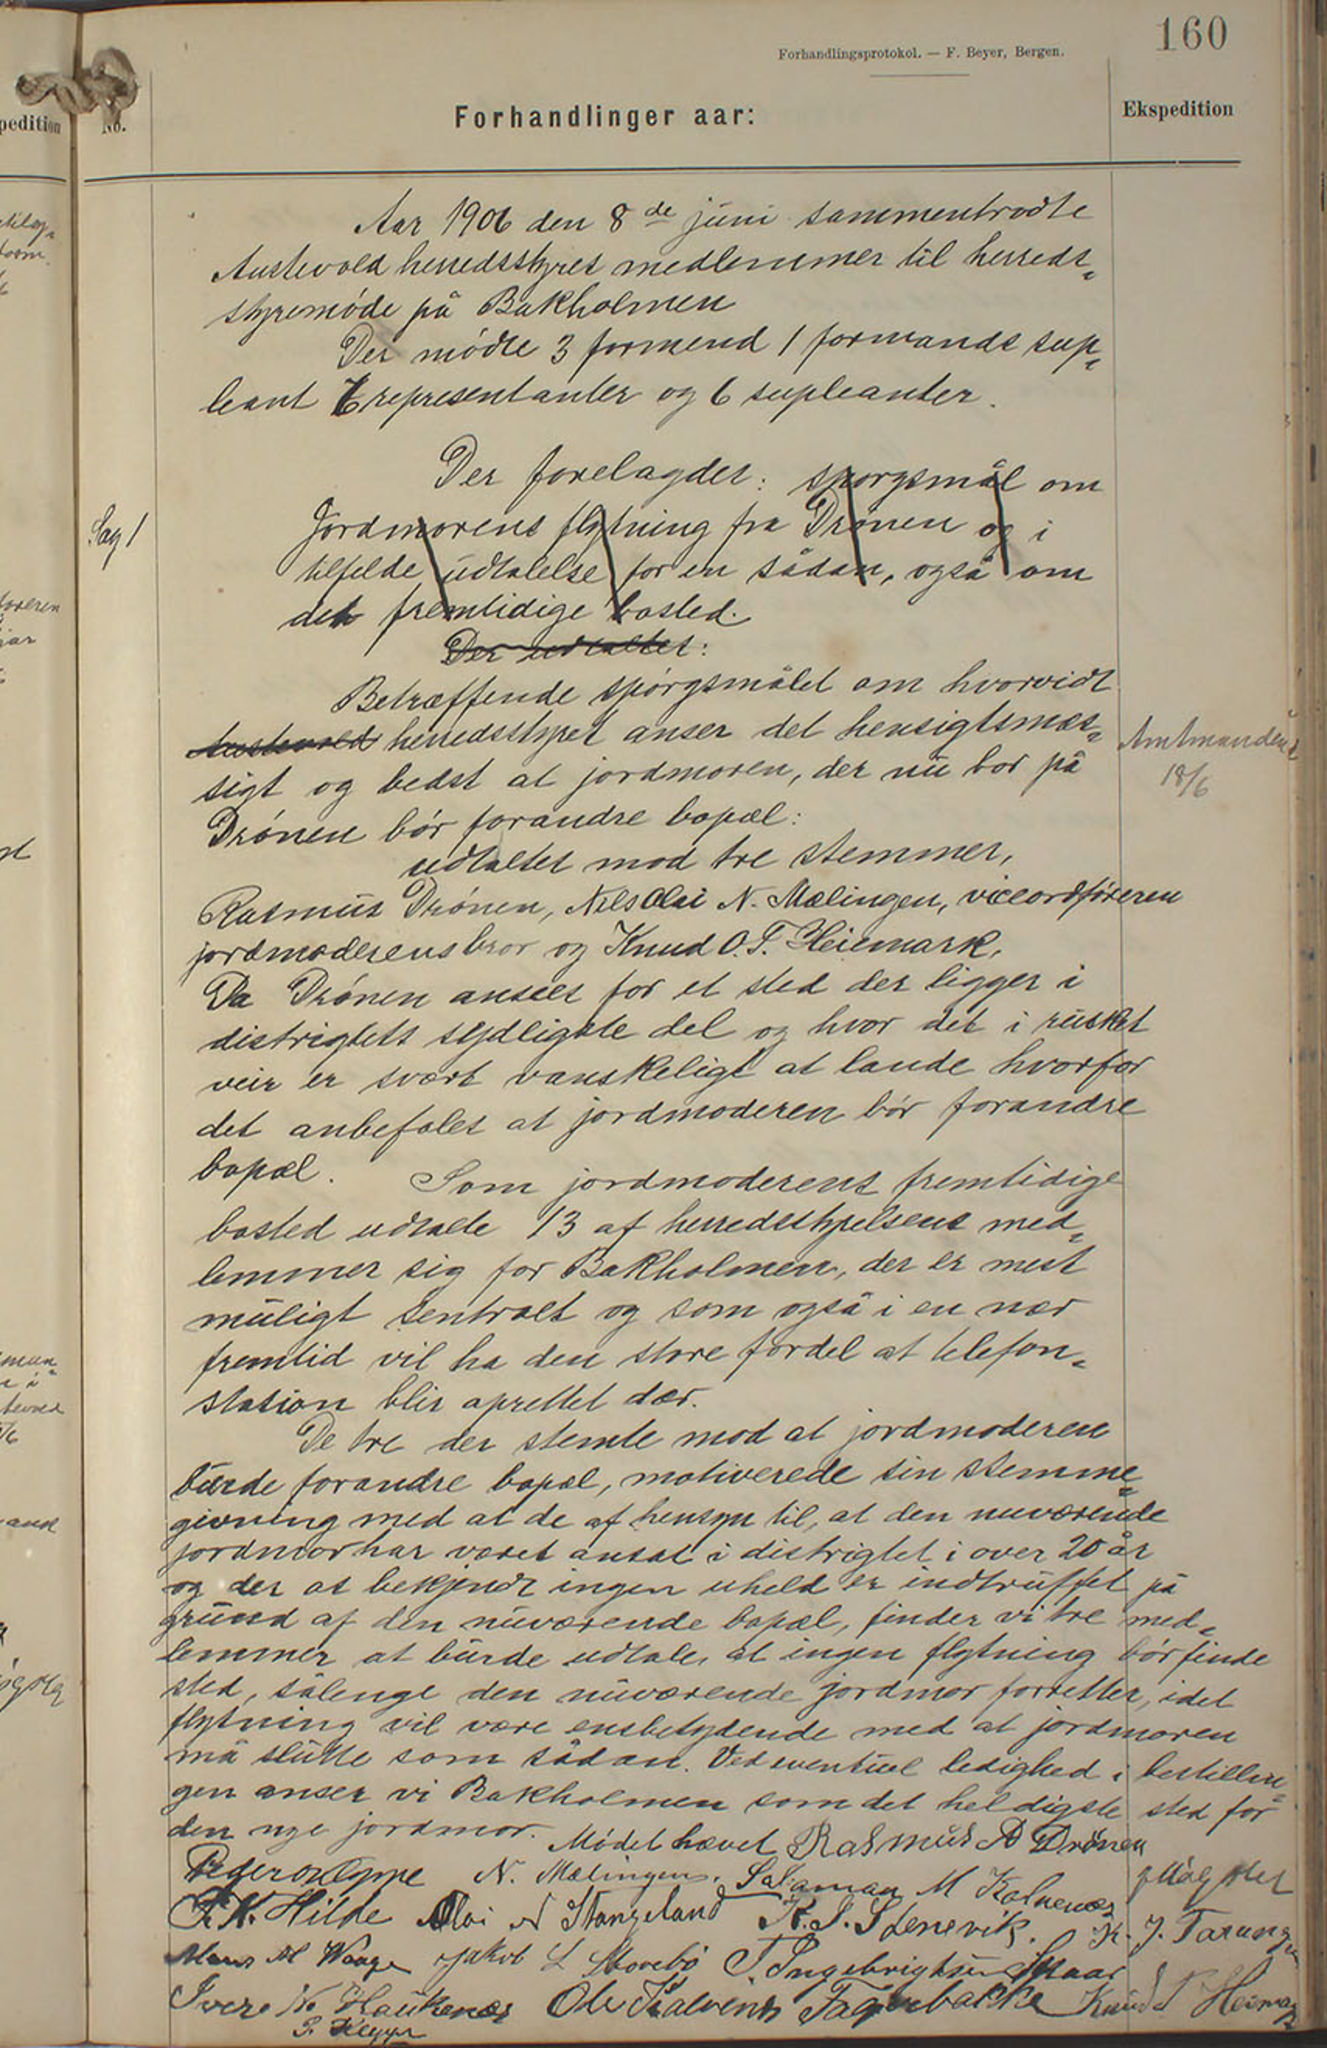 160
Forhandlingsprotokol. — F. Beyer, Bergen.
pedition
No.
Forhandlinger aar:
Ekspedition
Aar 1906 den 8de juni sammentrodte
Austevold herredsstyres medlemmer til herreds-
styremöde på Bakholmen
Der mödte 3 formend 1 formands sup-
leant 6 representanter og 6 supleanter.
Der forelagdes: spørgsmål om
Sag 1
Jordmorens flytning fra Drönen og i
tilfelde udtalelse for en sådan, også om
det fremtidige bosted.
Der udtaltes:
Betræffende spörgsmålet om hvorvidt
Austevold herredsstyret anser det hensigtsmæs-
sigt og bedst at jordmoren, der nu bor på
Drönen bör forandre bopæl:
Amtmanden
18/6
udtaltes mod tre stemmer,
Rasmus Drönen, Nils Olai N. Mælingen, viceordföreren
jordmoderens bror og Knud O. T. Heiemark,
Da Drönen ansees for et sted der ligger i
distrigtets sydligste del og hvor det i rusket
veir er svært vanskeligt at lande hvorfor
det anbefales at jordmoderen bör forandre
bopæl. Som jordmoderens fremtidige
bosted udtalte 13 af herredsstyrelsens med-
lemmer sig for Bakholmen, der er mest
muligt sentralt og som også i en nær
fremtid vil ha den store fordel at telefon-
station blir oprettet dær.
De tre der stemte mod at jordmoderen
burde forandre bopæl, motiverede sin stemme-
givning med at de af hensyn til, at den nuværende
jordmor har været ansat i distrigtet i over 20 år
og der os bekjendt ingen uheld er indtruffet på
grund af den nuværende bopæl, finder vi tre med-
lemmer at burde udtale, at ingen flytning bör finde
sted, sålenge den nuværende jordmor forretter, idet
flytning vil være ensbetydende med at jordmoren
må slutte som sådan. Ved eventuel ledighed i bestillin-
gen anser vi Bakholmen som det heldigste sted for
den nye jordmor. Mödet hævet Rasmus A Drönen
N. Mælingen. Salaman M Kalvenæs
Hilde Olai N Stangeland K. J. Stenevik. K. J. Tarang
Mons M Waage Jakob L Storebö T. Ingebrigtsen
Iver N. Haukenæs Ole Kalvenes Fagerbakke Knud T Heimark